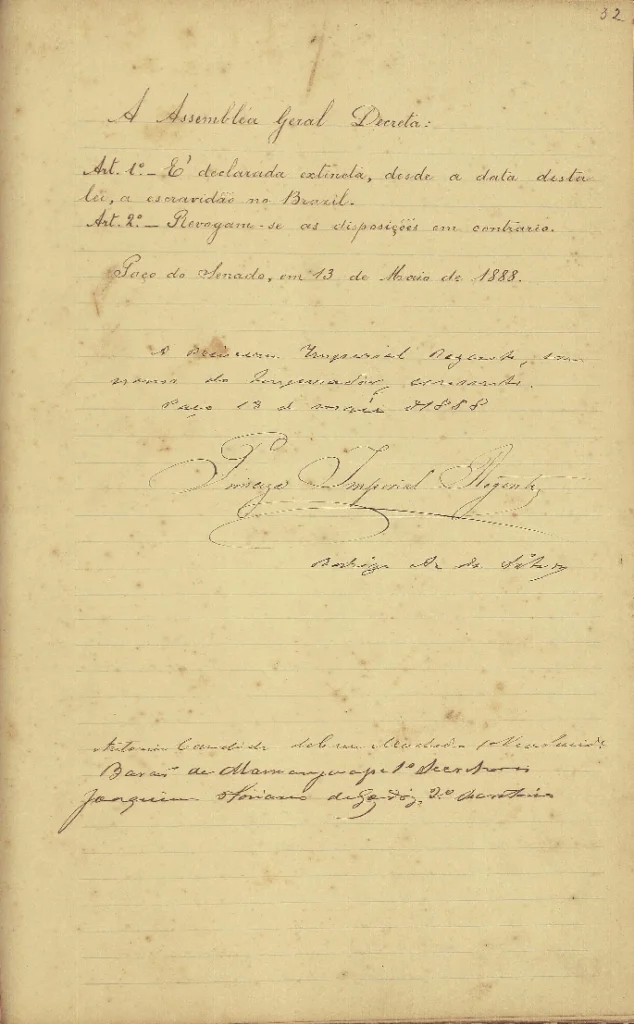 32
A Assembléa Geral Decreta:
Art. 1º — É declarada extincta, desde a data desta
lei, a escravidão no Brazil.
Art. 2º — Revogam-se as disposições em contrario.
Paço do Senado, em 13 de Maio de 1888.
A Princeza Imperial Regente, em
nome do Imperador, consente.
Paço 13 de maio de 1888
Princeza Imperial Regente
Rodrigo A. da Silva
Antonio Candido da Cruz Machado
Barão de Mamanguape 1º Secretario
Joaquim Floriano de Godoy, 2º Secretario